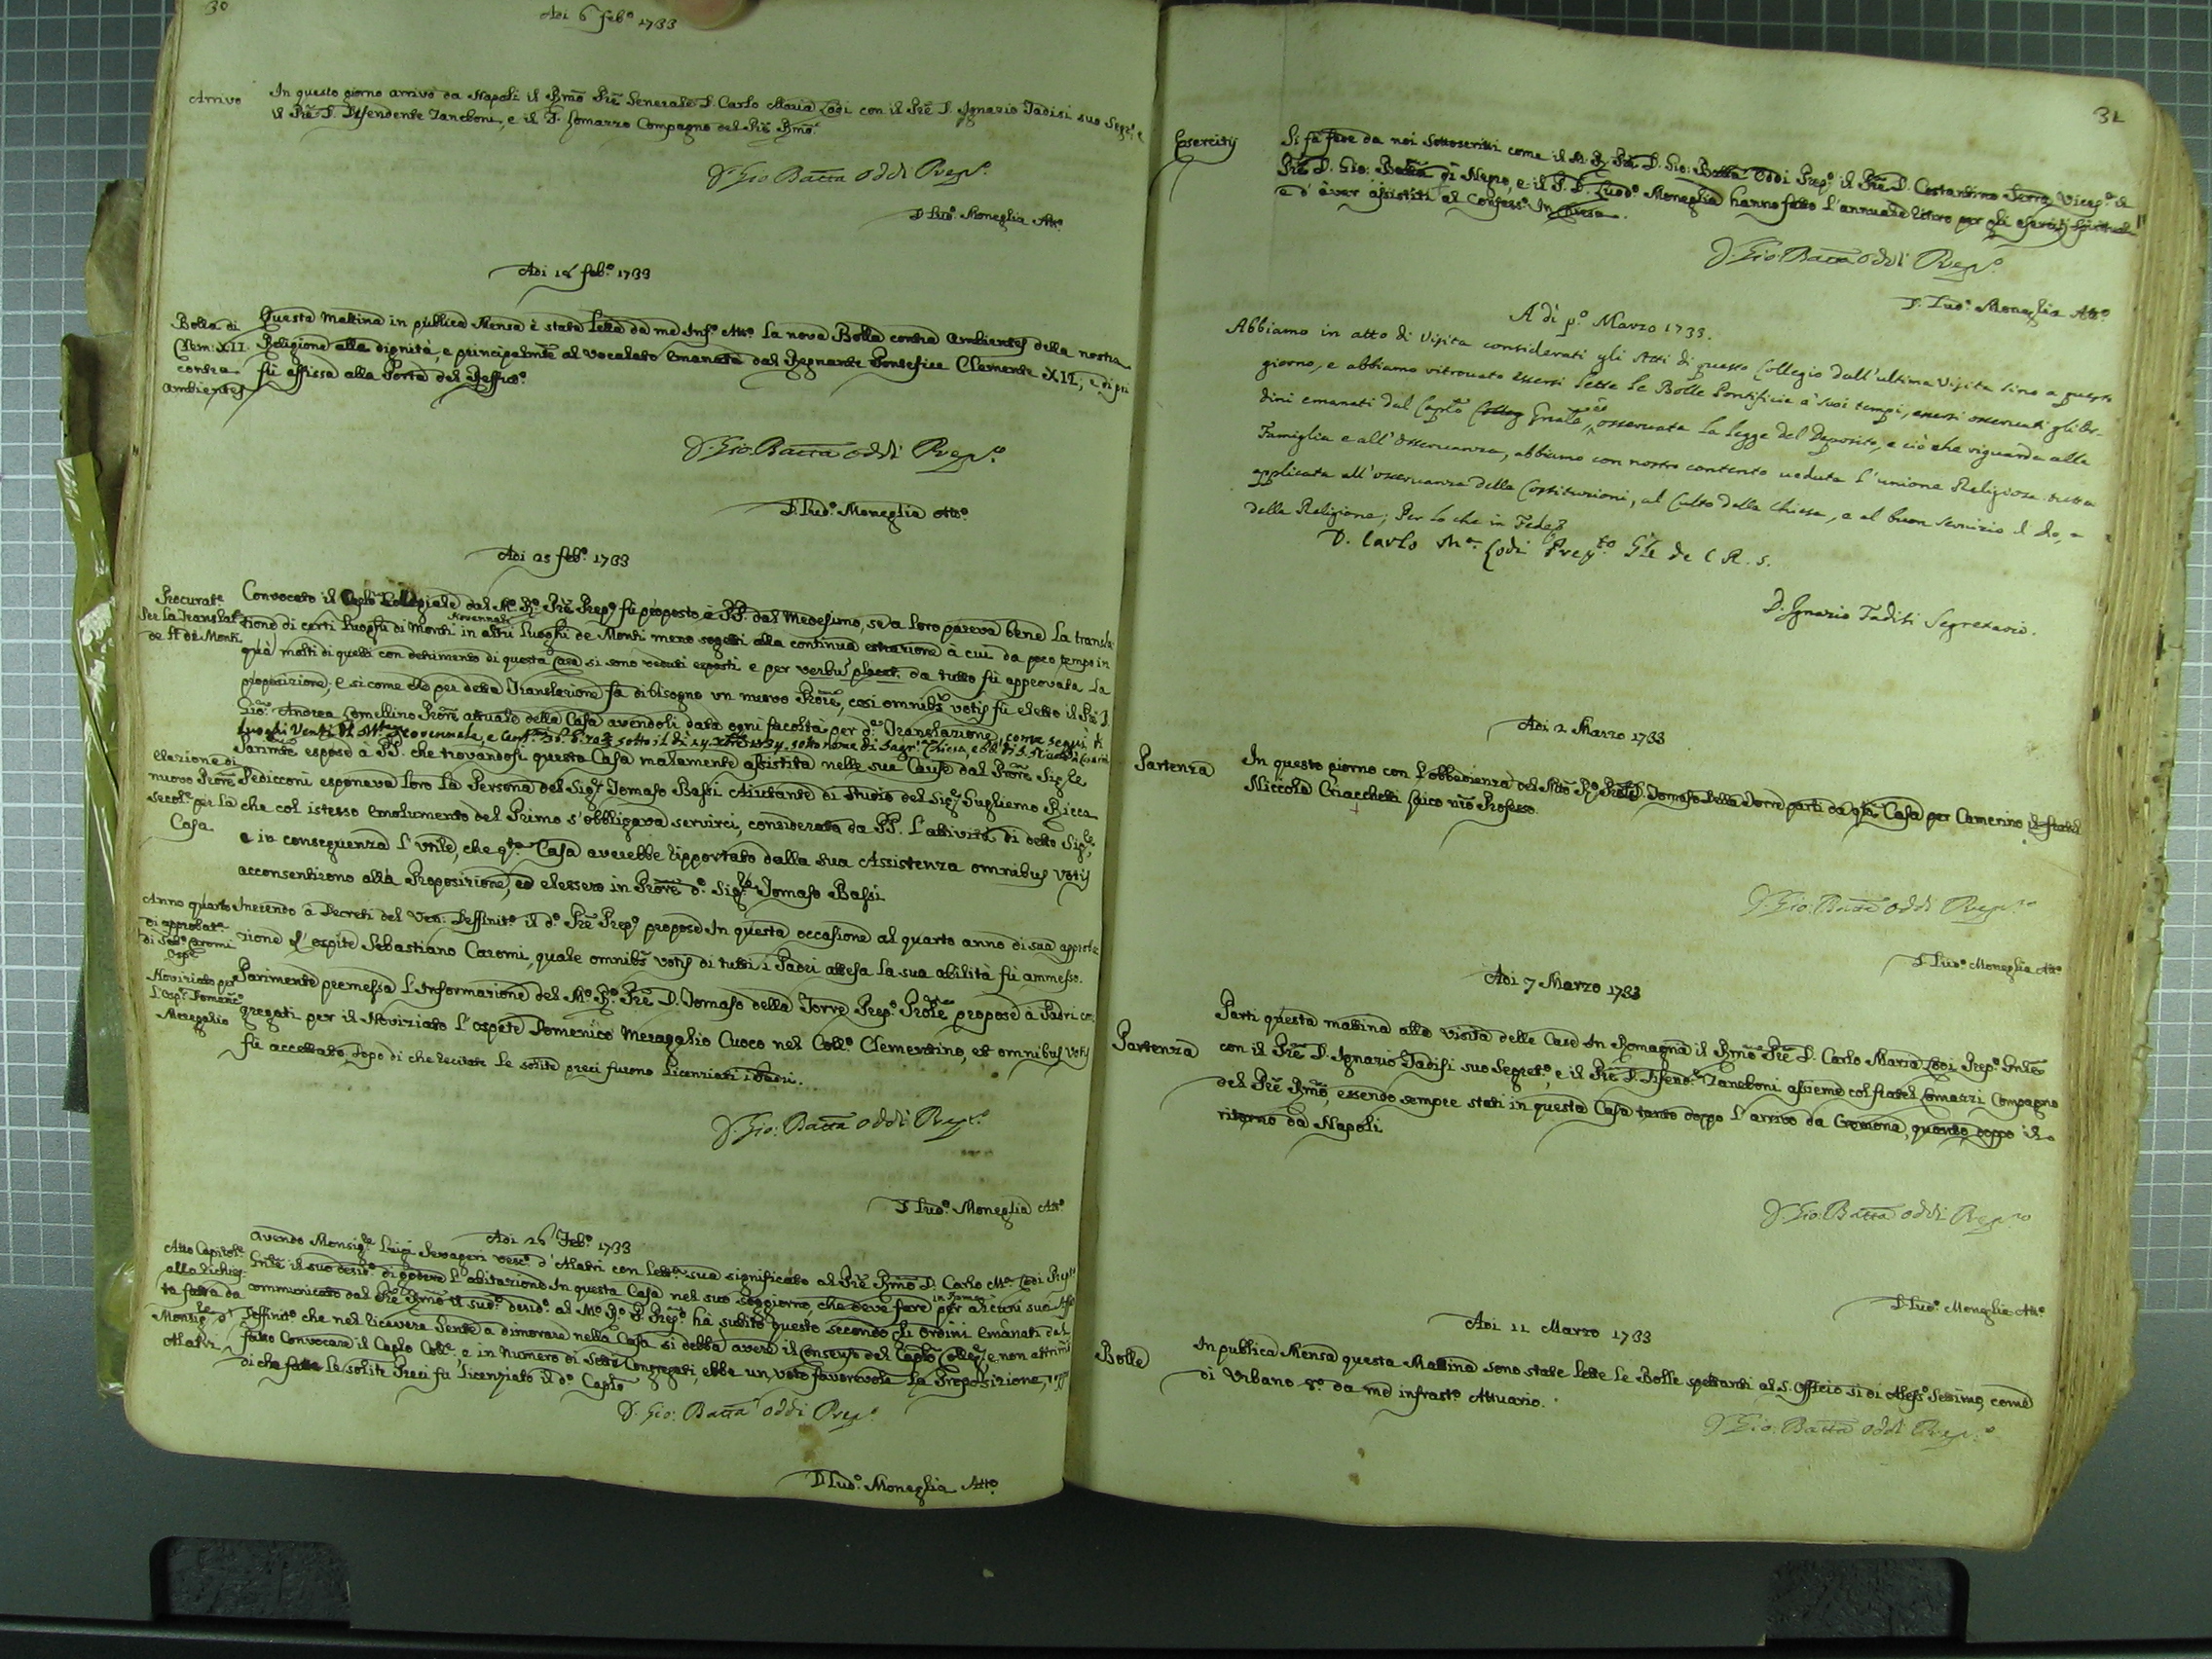 30
Adi 6 feb.o 1733
Arrivo
In questo giorno arrivò da Napoli il Rmo Pre Generale D. Carlo Maria Lodi con il Pre D. Ignazio Tadisi suo Segr.o e
il Pre D. Difendente Zanchoni, e il F. Comazzo Compagno del Pre Rmo.
D. Gio: Batta Oddi Prep.o
D. Lud.o Moneglia Att.o
Adi 14 feb.o 1733
Bolla di
Clem: XII
contra
Ambientes
Questa mattina in publica Mensa è stata letta da me Inf.o Att.o la nova Bolla contra Ambientes della nostra
Religione alla dignità, e principalmte al vocalato emanata dal Regnante Pontefice Clemente XII, e di poi
fù affissa alla Porta del Reffitt.o
D. Gio. Batta Oddi Prep.o
D. Lud.o Moneglia Att.o
Adi 25 feb.o 1733
Procurat.e
Per la Translat.e
de M. de Monti
Convocato il Caplo Collegiale dal M.o R.o Pre Prep.o fù proposto à PP. dal Medesimo, se a loro pareva bene la transla
tione di certi Luoghi di Monti Novennali in altri Luoghi de Monti meno sogetti alla continua estrazione à cui da poco tempo in
quà molti di quelli con detrimento di questa Casa si sono veduti esposti e per verbu placet. da tutto fù approvata la
proposizione; e si come che per detta Translazione fà di bisogno un nuovo Prore, così omnibs votis fù eletto il Pre D.
Gio: Andrea Comellino Prore attuale della Casa avendoli data ogni facoltà per d.a Translazione, come seguì di
Luoghi Venti di M.te Novennale, e sotto il dì 24 Xbre 1734. sotto nome di Sagr.a Chiesa, e Coll. di S. Nicola à Cesarini
Elezione di
nuovo Prore
Secol.e per la
Casa
Parimte espose à PP. che trovandosi questa Casa malamente assistita nelle sue Cause dal Prore Sig.re
Pedicconi esponeva loro la Persona del Sig.r Tomaso Bassi Aiutante di Studio del Sig.r Gugliemo Ricca
che col istesso emolumento del Primo s'obbligava servirci, considerata da PP. l'attività di detto Sig.re,
e in conseguenza l'utile, che q.ta Casa averebbe ripportato dalla sua Assistenza omnibus votis
acconsentirono alla Proposizione, ed elessero in Prore d.o Sig.re Tomaso Bassi
Anno quarto
di approbat.e
di Seb.o Caromi
Osp.e
Inerendo a Decreti del Ven: Deffinit.o il d.o Pre Prep.o propose In questa occasione al quarto anno di sua approba
zione l'ospite Sebastiano Caromi, quale omnibs votis di tutti i Padri attesa la sua abilità fù ammesso.
Noviziato per
l'Osp.e Domenico
Meregalio
Parimente premessa l'Informazione del M.o R.o Pre D. Tomaso della Torre Prep.o Prole propose à Padri con
gregati per il Noviziato l'ospete Domenico Meragalio Cuoco nel Coll.o Clementino, et omnibus votis
fù accettato, dopo di che recitate le solite preci furono licenziati i Padri.
D. Gio: Batta Oddi Prep.o
D. Lud.o Moneglia Att.o
Adi 26 Feb.o 1733
Atto Capitol.e
alla richies
ta fatta da
Monsig.re d'
Alatri
avendo Monsig.re Luigi Sevageri vesc.o d'Alatri con lett.a sua significato al Pre Rmo D. Carlo M.a Lodi Prep.to
Gnle il suo desid.o di godere l'abitazione In questa Casa nel suo soggiorno, che deve fare in Roma per alcuni suoi Aff.i
communicato dal Pre Rmo il sud.o desid.o al M.o R.o P. Prep.o hà subito questo secondo gli ordini emanati dal
Deffinit.o che nel ricevere gente a dimorare nella Casa si debba avere il Consenso del Caplo Colleg.e e non altrimi
fatto Convocare il Caplo Coll.e, e in Numero di Sette Congregati, ebbe un voto favorevole la Proposizione, dopo
di che fatte le solite Preci fù licenziato il d.o Caplo
D. Gio: Batta Oddi Prep.o
D. Lud.o Moneglia Att.o
31
Esercitij
Si fà fede da noi sottoscritti come il M. R. Pre D. Gio: Batta Oddi Prep.o il Pre D. Costantino Serra Vicep.o il
Pre D. Gio: Batta di Negro, e il P. D. Lud.o Moneglia hanno fatto l'annuale ritiro per gli esercitij spirituali
e d'aver assistiti al Confess.o In Chiesa.
D. Gio: Batta Oddi Prep.o
D. Lud.o Moneglia Att.o
A dì p.o Marzo 1733.
Abbiamo in atto di Visita considerati gli Atti di questo Collegio dall'ultima Visita sino a questo
giorno, e abbiamo ritrovato essersi lette le Bolle Pontificie a' suoi tempi, essersi osservati gli Or-
dini emanati dal Caplo Gnale, osservata la legge del Deposito, e ciò che riguarda alla
Famiglia e all'osservanza, abbiamo con nostro contento veduta l'unione Religiosa tutta
applicata all'osservanza delle Costituzioni, al Culto della Chiesa, e al buon servizio di Dio, e
della Religione; Per lo che in Fede
D. Carlo M.a Lodi Prep.to Gle de C. R. S.
D. Ignazio Tadisi Segretario.
Adi 2 Marzo 1733
Partenza
In questo giorno con l'obbedienza del Mto R.o Prole D. Tomaso della Torre partì da q.ta Casa per Camerino il fratel
Niccola Criaccheti laico nro Professo.
D. Gio: Batta Oddi Prep.to
D. Lud.o Moneglia Att.o
Adi 7 Marzo 1733
Partenza
Partì questa mattina alla visita delle Case In Romagna il Rmo Pre D. Carlo Maria Lodi Prep.o Gnle
con il Pre D. Ignazio Tadisi suo Segret.o, e il Pre D. Difend.e Zanchoni assieme col fratel Comazzi Compagno
del Pre Rmo, essendo sempre stati in questa Casa tanto doppo l'arrivo da Cremona, quanto doppo il
ritorno da Napoli
D. Gio: Batta Oddi Prep.to
D. Lud.o Moneglia Att.o
Adi 11 Marzo 1733
Bolle
In publica Mensa questa Mattina sono state lette le Bolle spettanti al S. Officio sì di Aless.o Settimo, come
di Urbano 8.o da me infrast.o Attuario.
D. Gio: Batta Oddi Prep.o